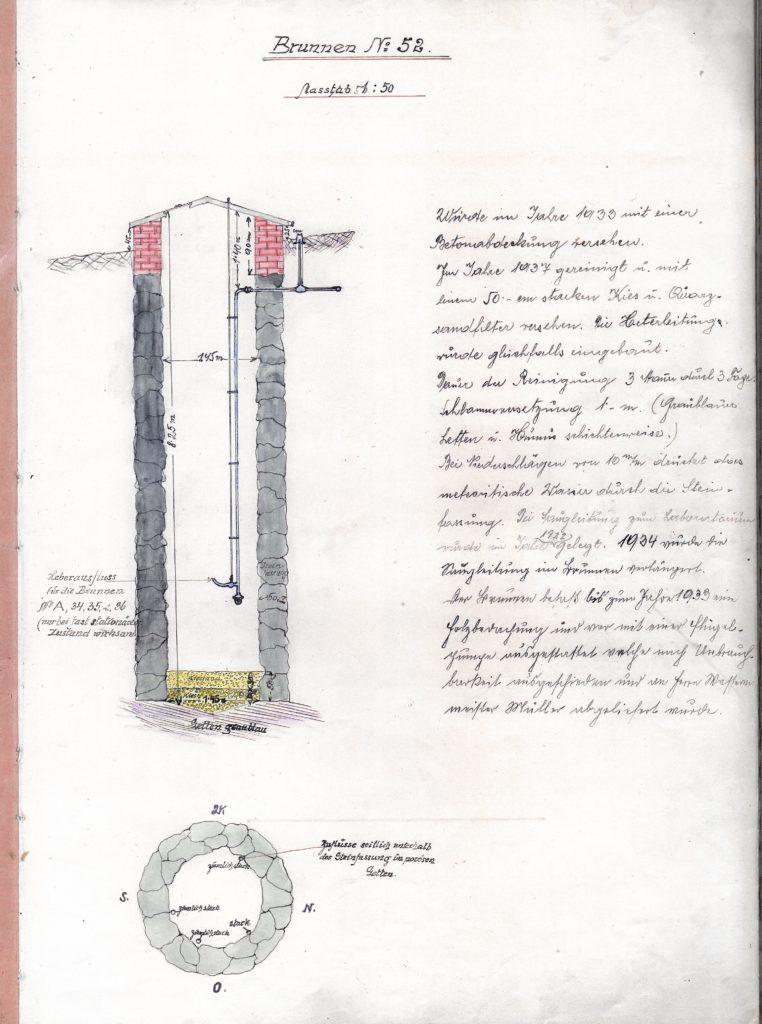 Brunnen No: 52.
Masstab 1:50
Wurde im Jahre 1933 mit einer
Betonabdeckung versehen.
Im Jahre 1937 gereinigt u. mit
einem 50.- cm starken Kies u. Quarz-
sandfilter versehen. Die Heberleitung
wurde gleichfalls eingebaut.
Dauer der Reinigung 3 Mann durch 3 Tage.
1.- m. (Graublauer
Letten u. Humus schichtenweise.)
Bei Niederschlägen von 10 m/m drückt das
Wasser durch die Stein-
fassung. Die Saugleitung zum Laboratorium
wurde im Jahre 1922 gelegt. 1934 wurde die
Saugleitung im Brunnen verlängert.
Der Brunnen besaß bis zum Jahre 1933 ein
Holzbedachung und war mit einer Flügel-
pumpe ausgestattet welche nach Unbrauch-
barkeit ausgeschieden und an Herrn
meister Müller abgeliefert wurde.
1·40 m
1.45 m
8·25 m
Stein-
fassung
Heberausfluss
für die Brunnen
No A, 34, 35, u. 36
(nur bei fast
Zustand wirksam)
Letten graublau
Zuflüsse seitlich unterhalb
der Steinfassung im porösen
Letten.
ziemlich stark
S.
ziemlich stark
N.
stark
ziemlich stark
O.